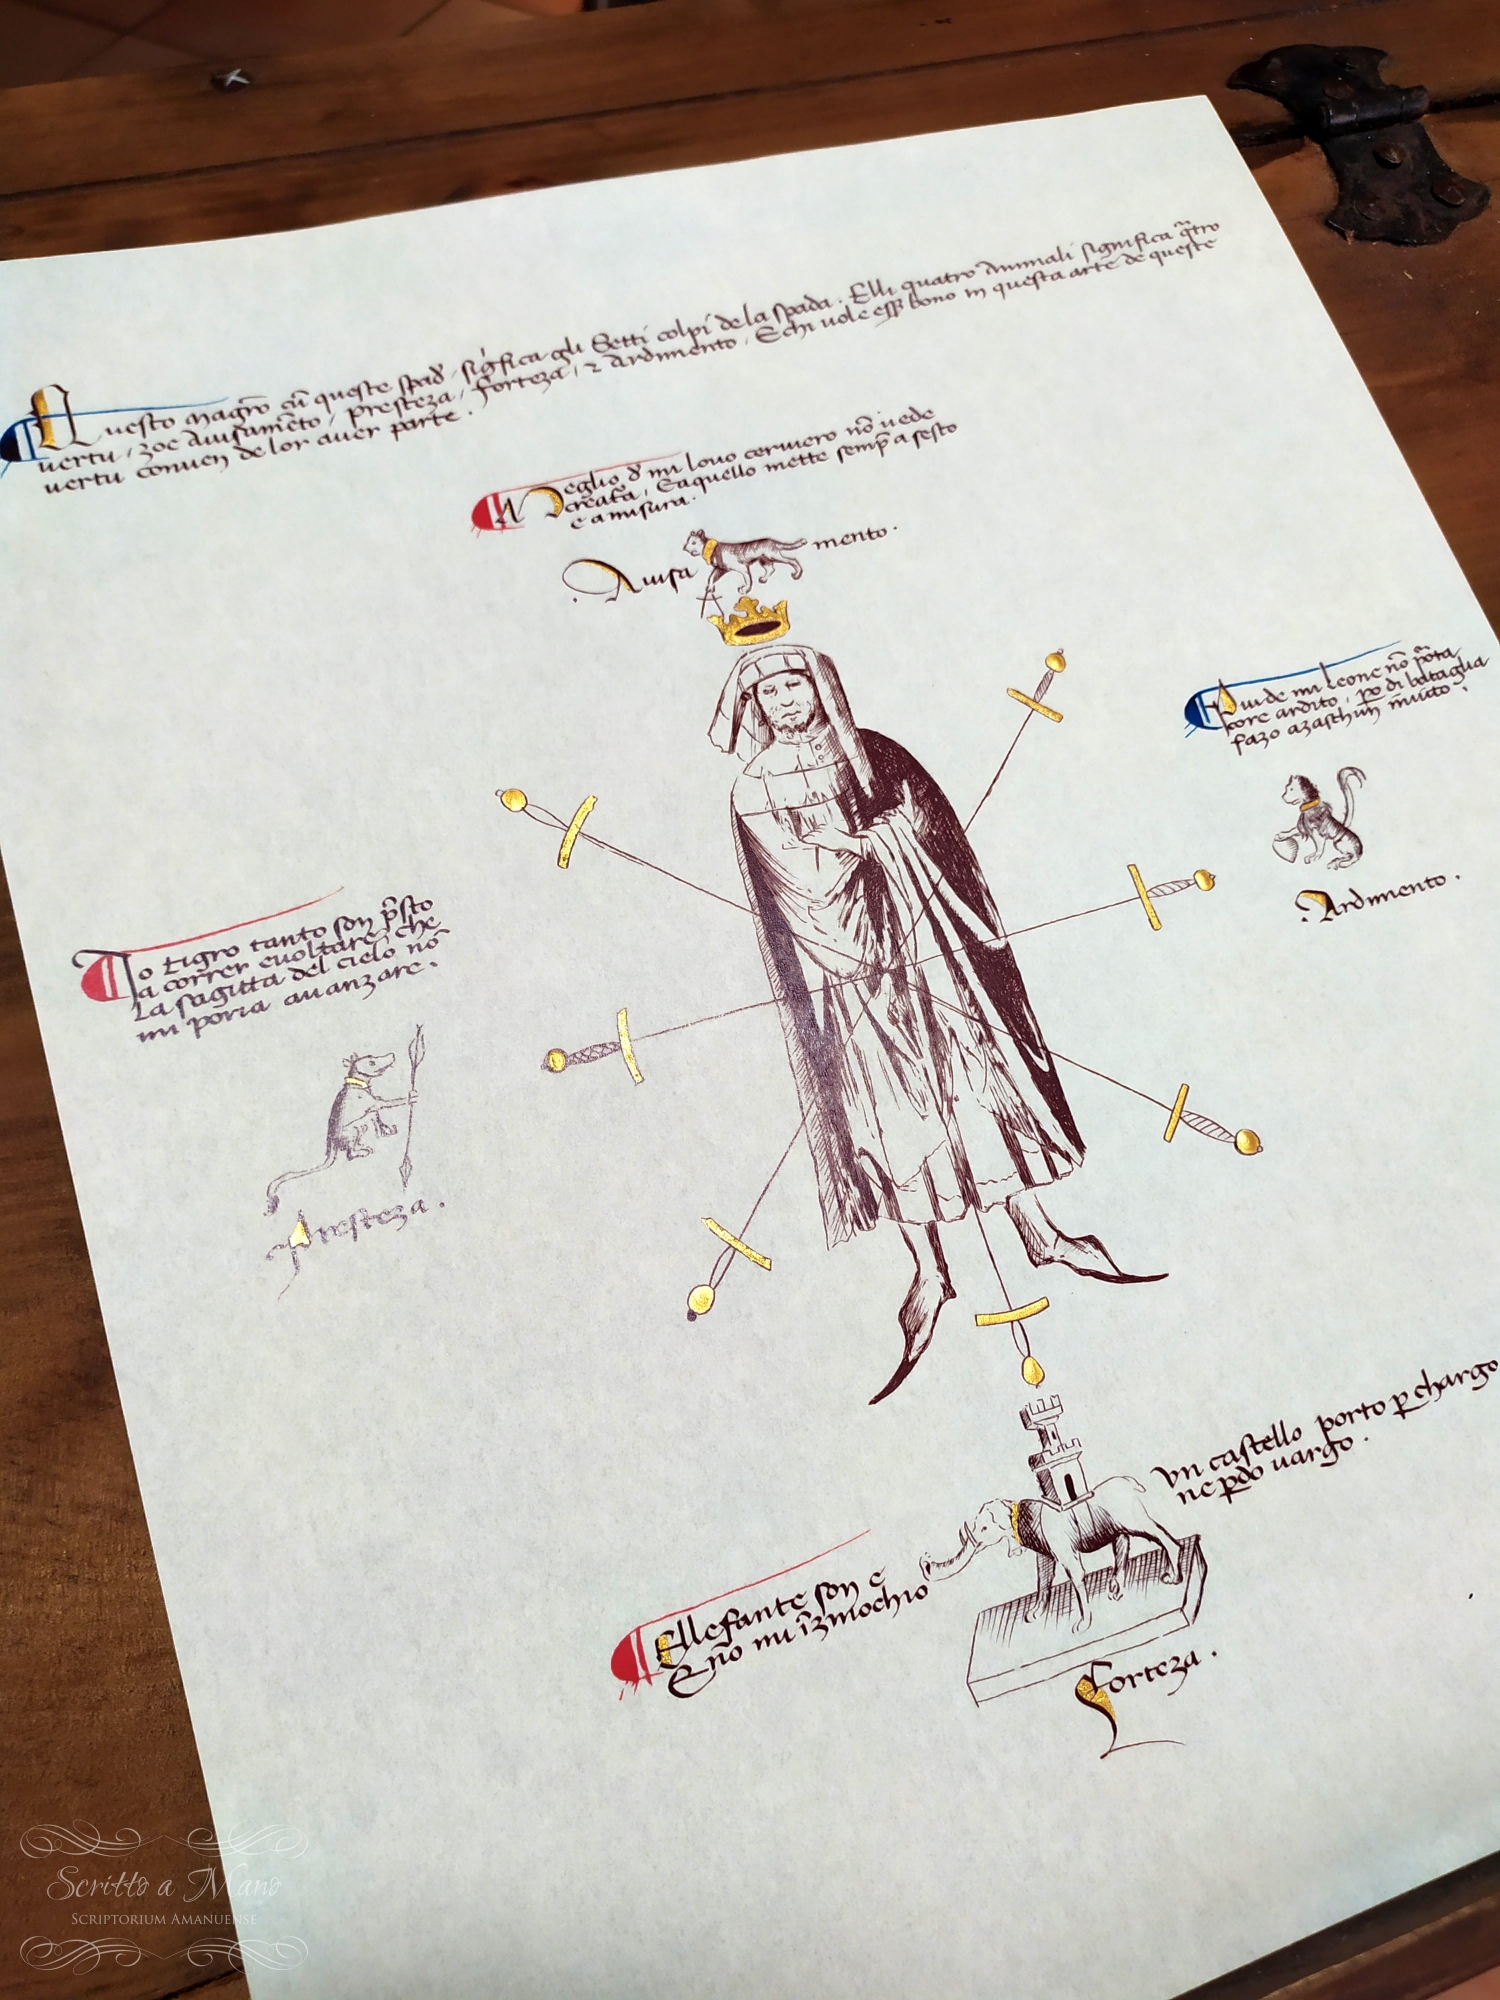 Questo magrō cū queste spad̄. sig̃fica gli Setti colpi dela spada. Elli quatro Animali significa q̃tro
vertu, zoe Auisamēto, Presteza, Forteza, ⁊ Ardimento. E chi uole ess̄ bono in questa arte de queste
vertu conuen de lor auer parte.
Meglio d̄ mi louo ceruiero nō uede
creat̃a, Eaquello mette semp̃ a sesto
e a misura.
Auisa mento.
Piu de mi Leone nō p̃ota
core ardito, po di bataglia
fazo azaschun īuito.
Ardimento.
Io tigro tanto son p̃sto
a correr euoltare che
La sagitta del cielo nō
mi poria auanzare.
Presteza.
Ellefante son e un castello porto p̱ chargo
E nō mi īzinochio ne p̱do uargo.
Forteza.
Scritto a Mano
Scriptorium Amanuense